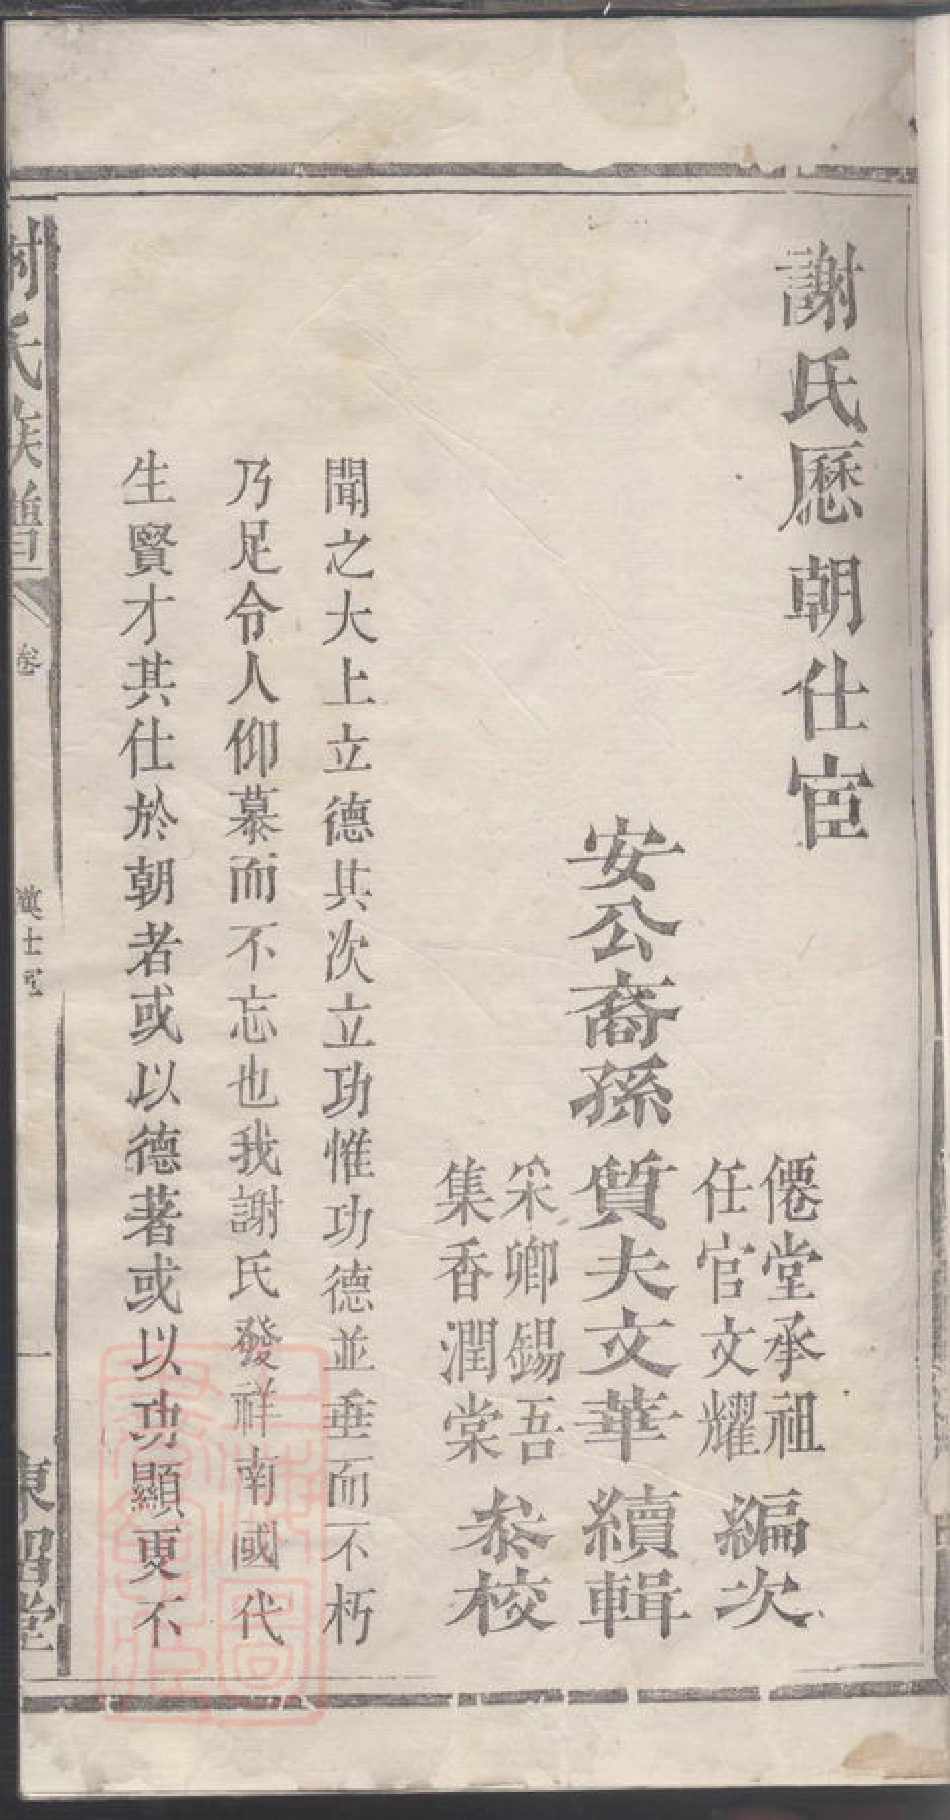 謝氏歷朝仕宦
僊堂承祖
任官文耀
編次
安公裔孫質夫文華續輯
采卿錫吾
集香潤棠
叅校
聞之大上立德其次立功惟功德並垂而不朽
乃足令人仰慕而不忘也我謝氏發祥南國代
生賢才其仕於朝者或以德著或以功顯更不
謝氏族譜
卷
一
東留堂
上海圖
書館藏